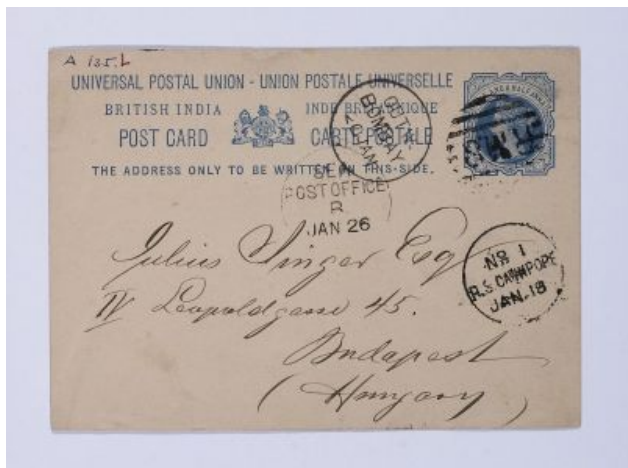 A 135.L
UNIVERSAL POSTAL UNION - UNION POSTALE UNIVERSELLE
BRITISH INDIA INDE BRITANNIQUE
POST CARD CARTE POSTALE
THE ADDRESS ONLY TO BE WRITTEN ON THIS SIDE.
BOMBAY
JAN
SEA
POST OFFICE
B
JAN 26
Julius Singer Esq
IV Leopoldgasse 45.
Budapest
(Hungary)
No 1
R.S. CAWNPORE
JAN. 18